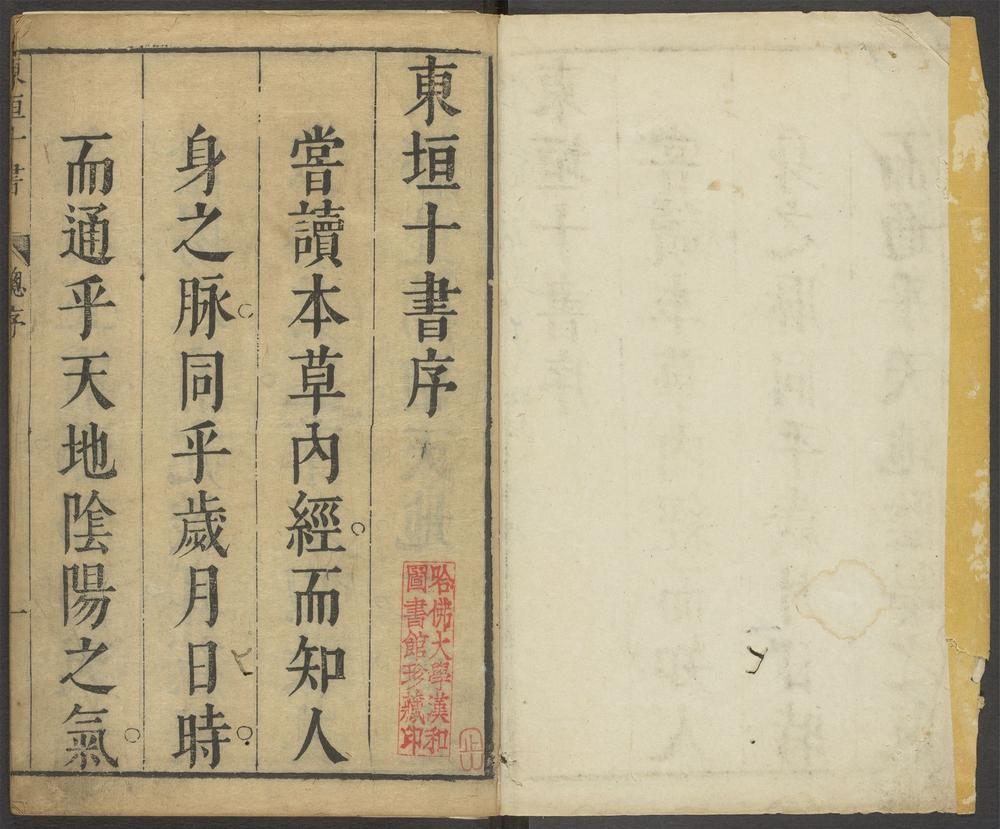 東垣十書序
甞讀本草內經。而知人
身之脉。同乎歲月日時。
而通乎天地隂陽之氣。
哈佛大學漢和
圖書館珍藏印
總序
一